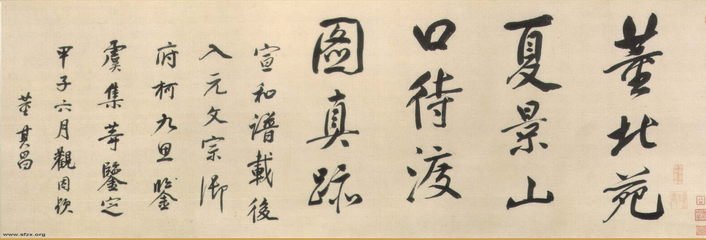 董北苑
夏景山
口待渡
圖真跡
宣和譜載後
入元文宗御
府柯九思鑒
虞集等鑒定
甲子六月觀因題
董其昌
www.sfzx.org